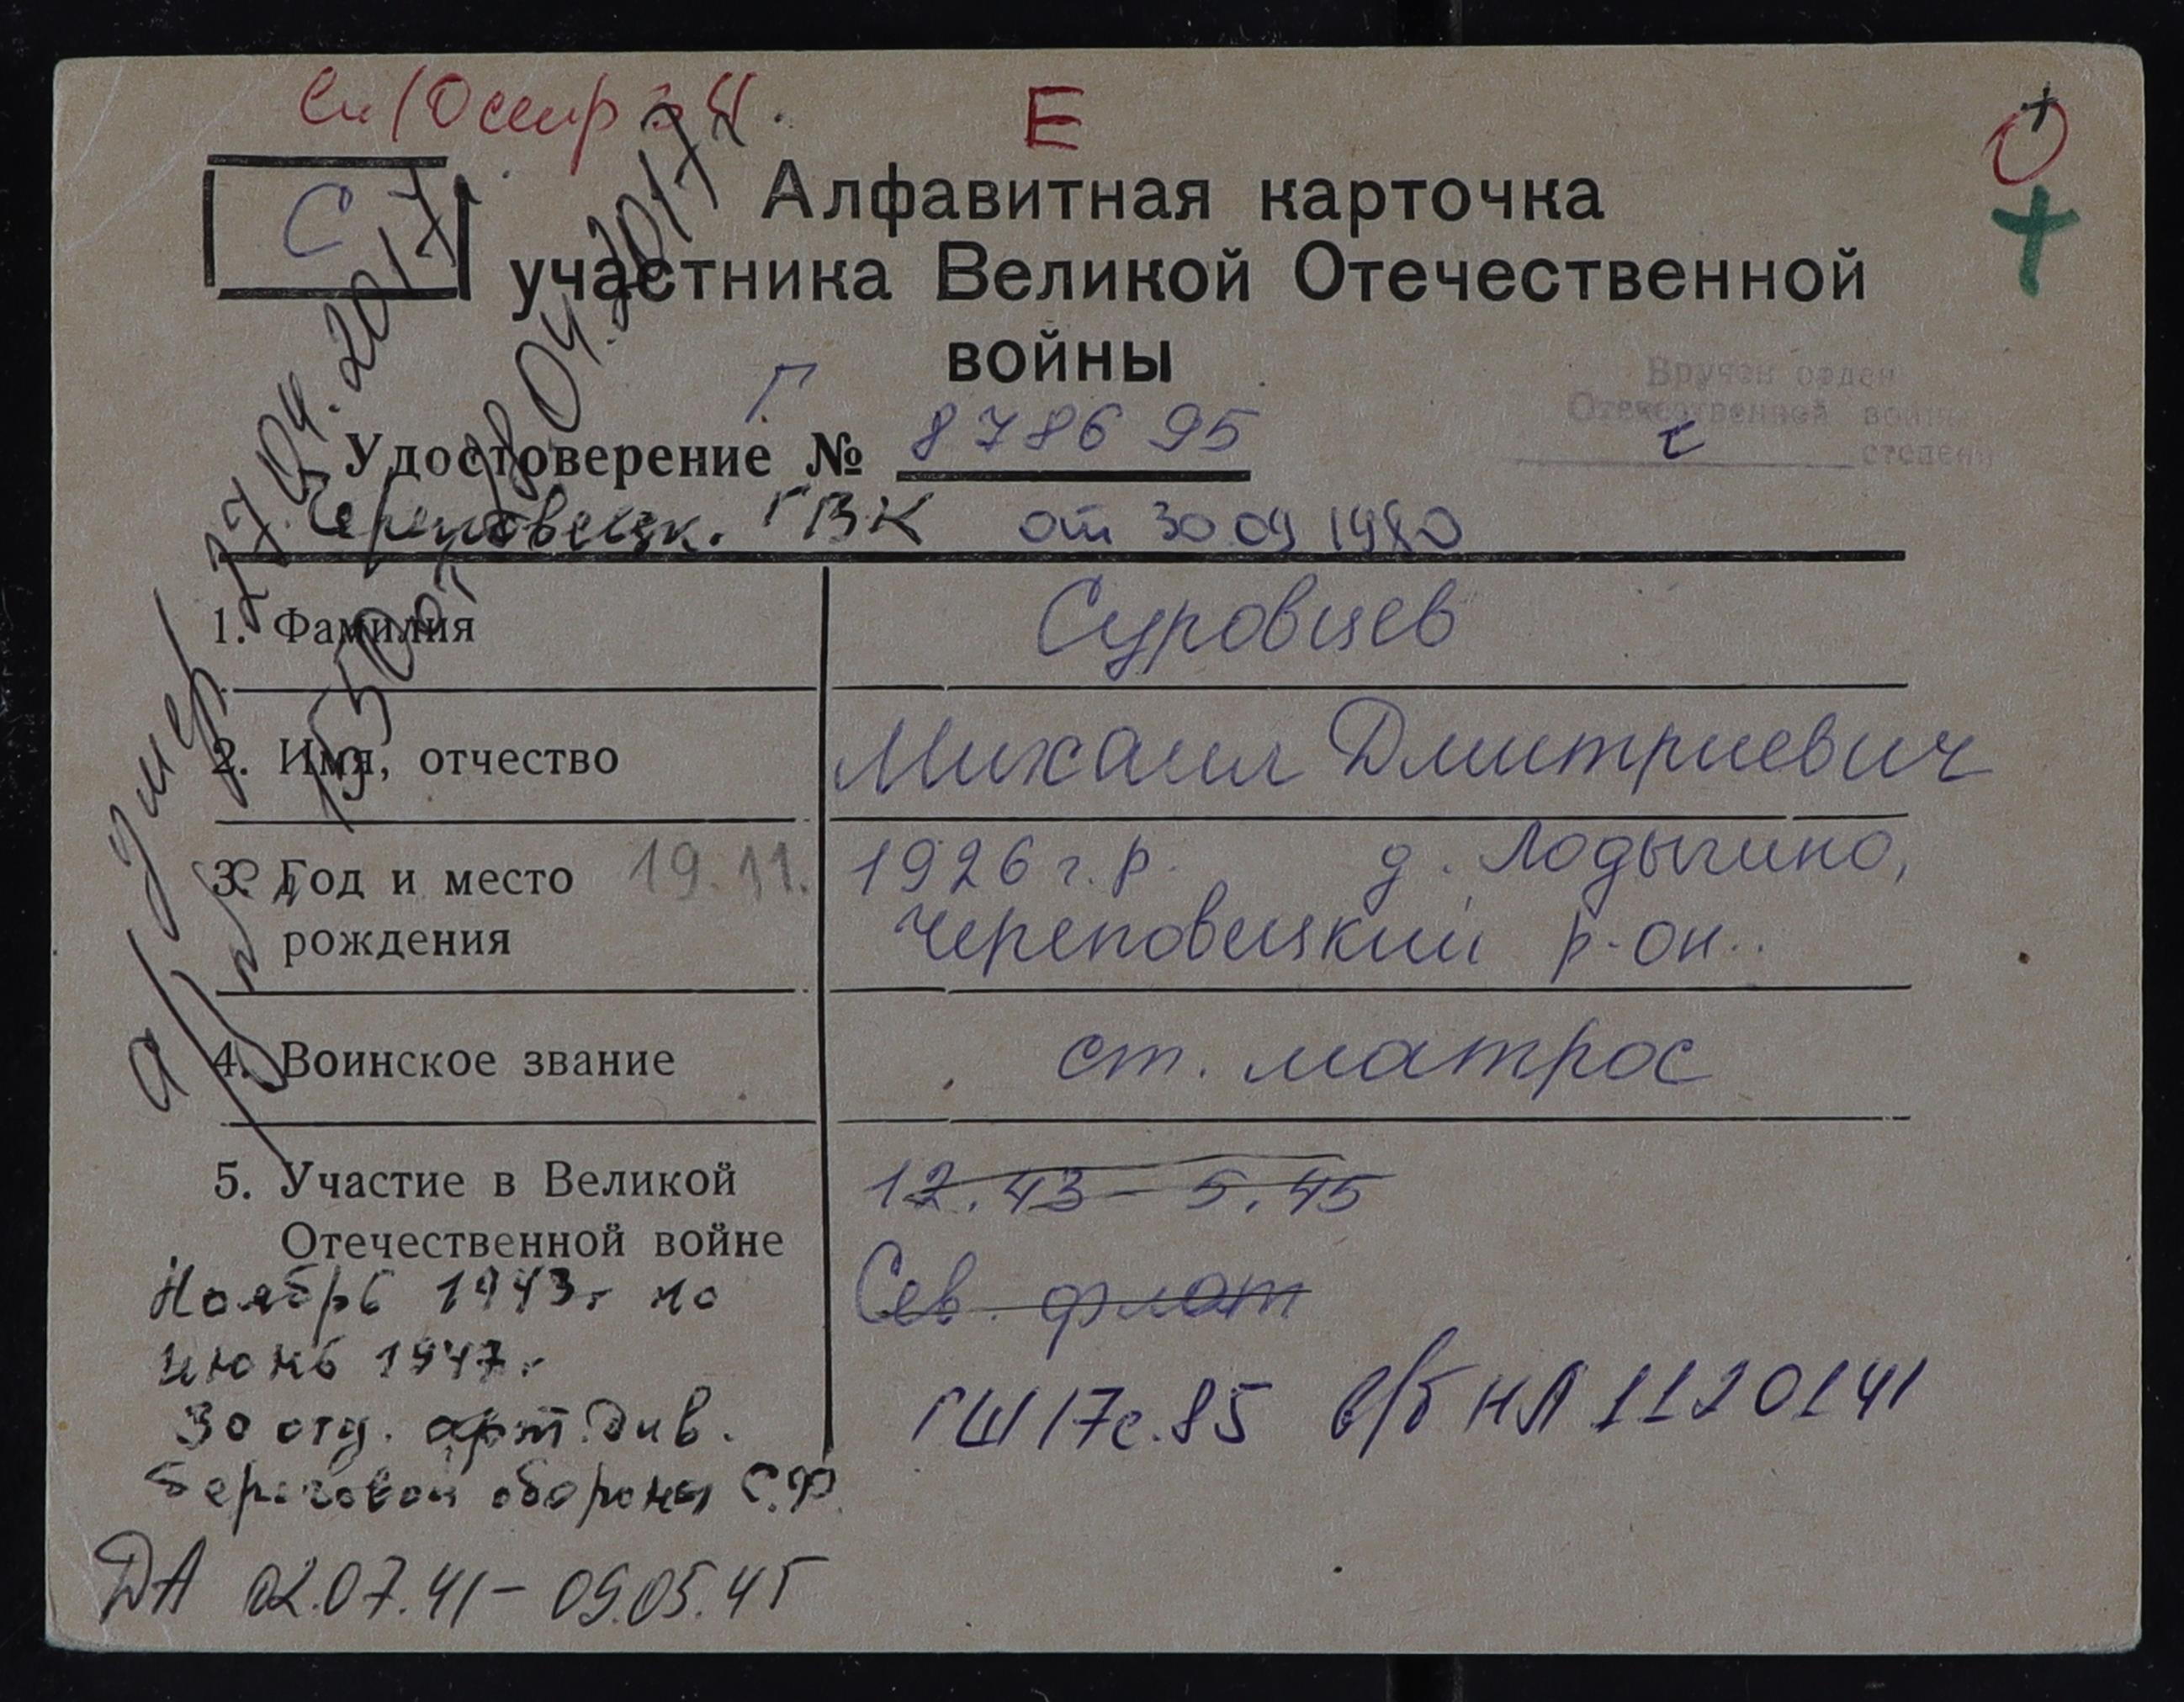 Е
С
Алфавитная карточка
участника Великой Отечественной
войны
Вручен орден
Отечественной войны
степени
Г
Удостоверение № 878695
Череповецк. ГВК от 30.09.1980
1. Фамилия Суровцев
2. Имя, отчество Михаил Дмитриевич
3. Год и место 19.11. 1926 г.р. д. Лодыгино,
рождения Череповецкий р-он.
4. Воинское звание ст. матрос
5. Участие в Великой 12.43 - 5.45
Отечественной войне
Сев. флот
Ноябрь 1943г по
июнь 1947г.
30 отд. арт. див.
береговой обороны С.Ф.
ГШ 17с. 85 в/б НЛ 1120141
ДА 02.07.41 - 09.05.45
умер 17.04.2017
18.04.2017